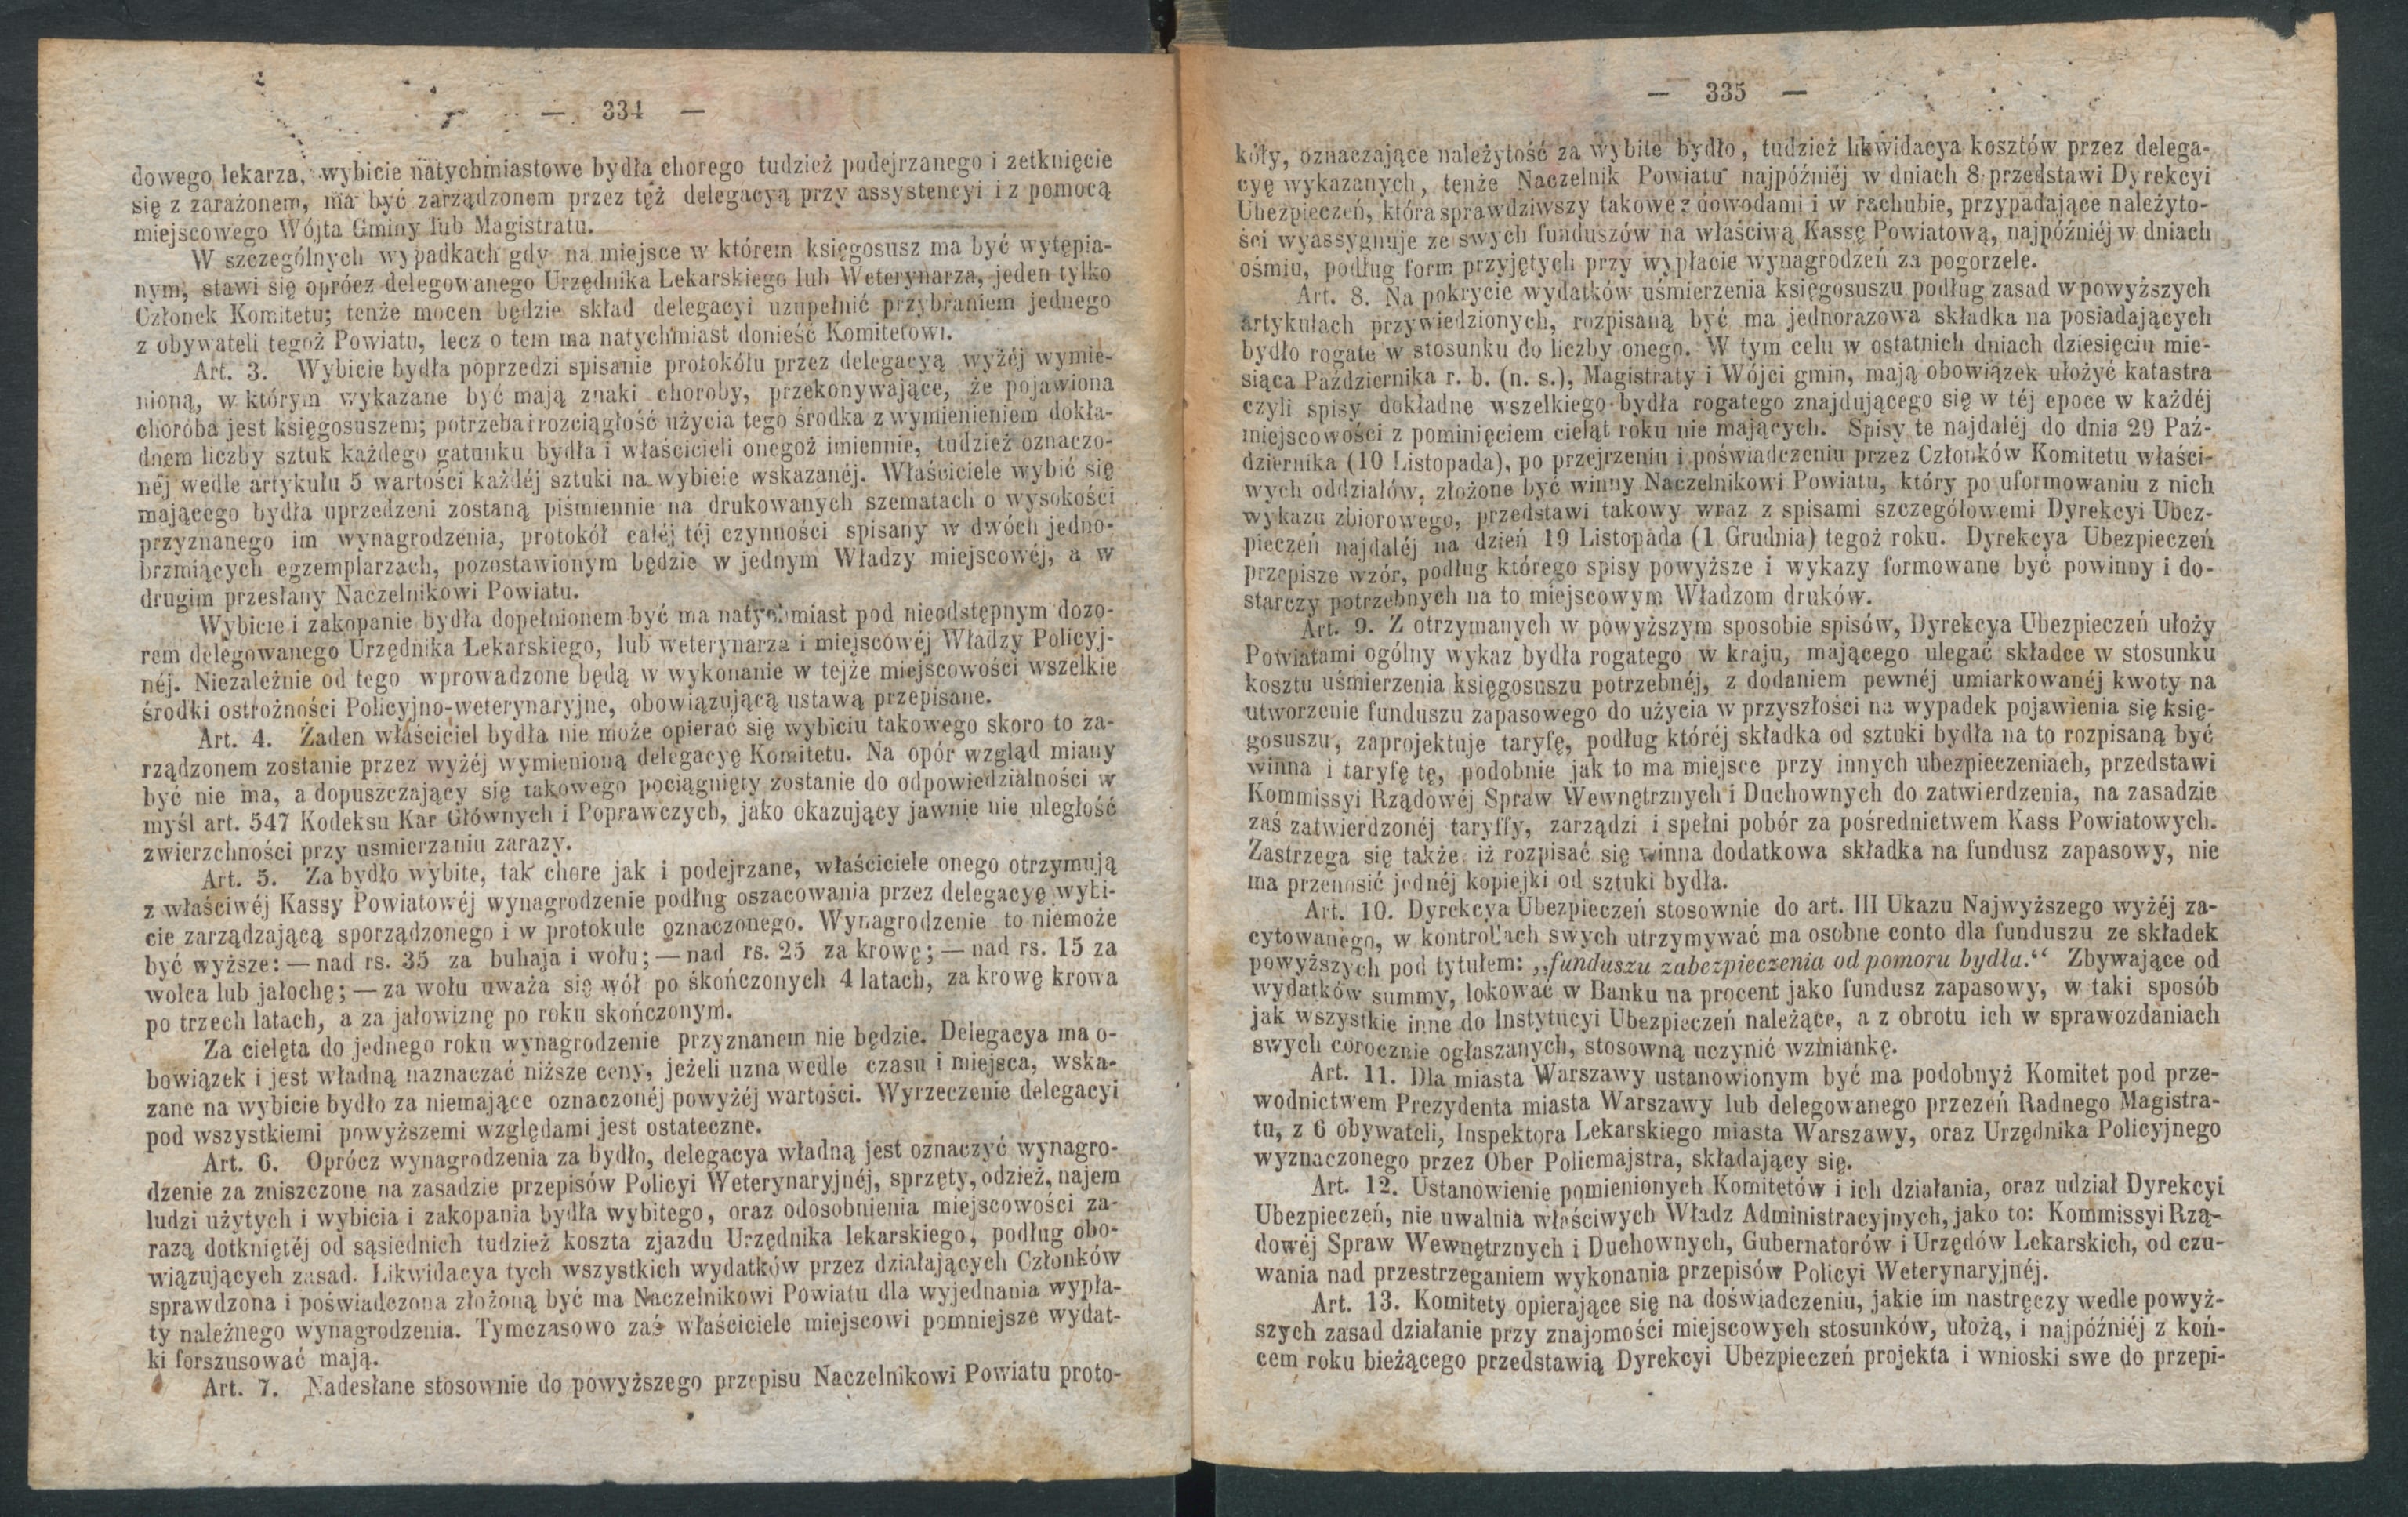 — 334 —
dowego lekarza, wybicie natychmiastowe bydła chorego tudzież podejrzanego i zetknięcie
się z zarażonem, ma być zarządzonem przez tęż delegacyą przy assystencyi i z pomocą
miejscowego Wójta Gminy lub Magistratu.
W szczególnych wypadkach gdy na miejsce w którem księgosusz ma być wytępia-
nym, stawi się oprócz delegowanego Urzędnika Lekarskiego lub Weterynarza, jeden tylko
Członek Komitetu; tenże mocen będzie skład delegacyi uzupełnić przybraniem jednego
z obywateli tegoż Powiatu, lecz o tem ma natychmiast donieść Komitetowi.
Art. 3. Wybicie bydła poprzedzi spisanie protokółu przez delegacyą wyżéj wymie-
nioną, w którym wykazane być mają znaki choroby, przekonywające, że pojawiona
choroba jest księgosuszem; potrzeba i rozciągłość użycia tego środka z wymienieniem dokła-
dnem liczby sztuk każdego gatunku bydła i właścicieli onegoż imiennie, tudzież oznaczo-
néj wedle artykułu 5 wartości każdéj sztuki na wybicie wskazanéj. Właściciele wybić się
mającego bydła uprzedzeni zostaną piśmiennie na drukowanych szematach o wysokości
przyznanego im wynagrodzenia, protokół całéj téj czynności spisany w dwóch jedno-
brzmiących egzemplarzach, pozostawionym będzie w jednym Władzy miejscowéj, a w
drugim przesłany Naczelnikowi Powiatu.
Wybicie i zakopanie bydła dopełnionem być ma natychmiast pod nieodstępnym dozo-
rem delegowanego Urzędnika Lekarskiego, lub weterynarza i miejscowéj Władzy Policyj-
néj. Niezależnie od tego wprowadzone będą w wykonanie w tejże miejscowości wszelkie
środki ostrożności Policyjno-weterynaryjne, obowiązującą ustawą przepisane.
Art. 4. Żaden właściciel bydła nie może opierać się wybiciu takowego skoro to za-
rządzonem zostanie przez wyżéj wymienioną delegacyę Komitetu. Na opór wzgląd miany
być nie ma, a dopuszczający się takowego pociągnięty zostanie do odpowiedzialności w
myśl art. 547 Kodeksu Kar Głównych i Poprawczych, jako okazujący jawnie nie uległość
zwierzchności przy uśmierzaniu zarazy.
Art. 5. Za bydło wybite, tak chore jak i podejrzane, właściciele onego otrzymują
z właściwéj Kassy Powiatowéj wynagrodzenie podług oszacowania przez delegacyę wybi-
cie zarządzającą sporządzonego i w protokule oznaczonego. Wynagrodzenie to niemoże
być wyższe: — nad rs. 35 za buhaja i wołu; — nad rs. 25 za krowę; — nad rs. 15 za
wolca lub jałochę; — za wołu uważa się wół po skończonych 4 latach, za krowę krowa
po trzech latach, a za jałowiznę po roku skończonym.
Za cielęta do jednego roku wynagrodzenie przyznanem nie będzie. Delegacya ma o-
bowiązek i jest władną naznaczać niższe ceny, jeżeli uzna wedle czasu i miejsca, wska-
zane na wybicie bydło za niemające oznaczonéj powyżéj wartości. Wyrzeczenie delegacyi
pod wszystkiemi powyższemi względami jest ostateczne.
Art. 6. Oprócz wynagrodzenia za bydło, delegacya władną jest oznaczyć wynagro-
dzenie za zniszczone na zasadzie przepisów Policyi Weterynaryjnéj, sprzęty, odzież, najem
ludzi użytych i wybicia i zakopania bydła wybitego, oraz odosobnienia miejscowości za-
razą dotkniętéj od sąsiednich tudzież koszta zjazdu Urzędnika lekarskiego, podług obo-
wiązujących zasad. Likwidacya tych wszystkich wydatków przez działających Członków
sprawdzona i poświadczona złożoną być ma Naczelnikowi Powiatu dla wyjednania wypła-
ty należnego wynagrodzenia. Tymczasowo zaś właściciele miejscowi pomniejsze wydat-
ki forszusować mają.
Art. 7. Nadesłane stosownie do powyższego przepisu Naczelnikowi Powiatu proto-
— 335 —
kóły, oznaczające należytość za wybite bydło, tudzież likwidacya kosztów przez delega-
cyę wykazanych, tenże Naczelnik Powiatu najpóźniéj w dniach 8 przedstawi Dyrekcyi
Ubezpieczeń, która sprawdziwszy takowe z dowodami i w rachubie, przypadające należyto-
ści wyassygnuje ze swych funduszów na właściwą Kassę Powiatową, najpóźniéj w dniach
ośmiu, podług form przyjętych przy wypłacie wynagrodzeń za pogorzele.
Art. 8. Na pokrycie wydatków uśmierzenia księgosuszu podług zasad w powyższych
artykułach przywiedzionych, rozpisaną być ma jednorazowa składka na posiadających
bydło rogate w stosunku do liczby onego. W tym celu w ostatnich dniach dziesięciu mie-
siąca Października r. b. (n. s.), Magistraty i Wójci gmin, mają obowiązek ułożyć katastra
czyli spisy dokładne wszelkiego bydła rogatego znajdującego się w téj epoce w każdéj
miejscowości z pominięciem cieląt roku nie mających. Spisy te najdaléj do dnia 29 Paź-
dziernika (10 Listopada), po przejrzeniu i poświadczeniu przez Członków Komitetu właści-
wych oddziałów, złożone być winny Naczelnikowi Powiatu, który po uformowaniu z nich
wykazu zbiorowego, przedstawi takowy wraz z spisami szczegółowemi Dyrekcyi Ubez-
pieczeń najdaléj na dzień 19 Listopada (1 Grudnia) tegoż roku. Dyrekcya Ubezpieczeń
przepisze wzór, podług którego spisy powyższe i wykazy formowane być powinny i do-
starczy potrzebnych na to miejscowym Władzom druków.
Art. 9. Z otrzymanych w powyższym sposobie spisów, Dyrekcya Ubezpieczeń ułoży
Powiatami ogólny wykaz bydła rogatego w kraju, mającego ulegać składce w stosunku
kosztu uśmierzenia księgosuszu potrzebnéj, z dodaniem pewnéj umiarkowanéj kwoty na
utworzenie funduszu zapasowego do użycia w przyszłości na wypadek pojawienia się księ-
gosuszu, zaprojektuje taryfę, podług któréj składka od sztuki bydła na to rozpisaną być
winna i taryfę tę, podobnie jak to ma miejsce przy innych ubezpieczeniach, przedstawi
Kommissyi Rządowéj Spraw Wewnętrznych i Duchownych do zatwierdzenia, na zasadzie
zaś zatwierdzonéj taryffy, zarządzi i spełni pobór za pośrednictwem Kass Powiatowych.
Zastrzega się także iż rozpisać się winna dodatkowa składka na fundusz zapasowy, nie
ma przenosić jednéj kopiejki od sztuki bydła.
Art. 10. Dyrekcya Ubezpieczeń stosownie do art. III Ukazu Najwyższego wyżéj za-
cytowanego, w kontrollach swych utrzymywać ma osobne conto dla funduszu ze składek
powyższych pod tytułem: „funduszu zabezpieczenia od pomoru bydła.“ Zbywające od
wydatków summy, lokować w Banku na procent jako fundusz zapasowy, w taki sposób
jak wszystkie inne do Instytucyi Ubezpieczeń należące, a z obrotu ich w sprawozdaniach
swych corocznie ogłaszanych, stosowną uczynić wzmiankę.
Art. 11. Dla miasta Warszawy ustanowionym być ma podobnyż Komitet pod prze-
wodnictwem Prezydenta miasta Warszawy lub delegowanego przezeń Radnego Magistra-
tu, z 6 obywateli, Inspektora Lekarskiego miasta Warszawy, oraz Urzędnika Policyjnego
wyznaczonego przez Ober Policmajstra, składający się.
Art. 12. Ustanowienie pomienionych Komitetów i ich działania, oraz udział Dyrekcyi
Ubezpieczeń, nie uwalnia właściwych Władz Administracyjnych, jako to: Kommissyi Rzą-
dowéj Spraw Wewnętrznych i Duchownych, Gubernatorów i Urzędów Lekarskich, od czu-
wania nad przestrzeganiem wykonania przepisów Policyi Weterynaryjnéj.
Art. 13. Komitety opierające się na doświadczeniu, jakie im nastręczy wedle powyż-
szych zasad działanie przy znajomości miejscowych stosunków, ułożą, i najpóźniéj z koń-
cem roku bieżącego przedstawią Dyrekcyi Ubezpieczeń projekta i wnioski swe do przepi-